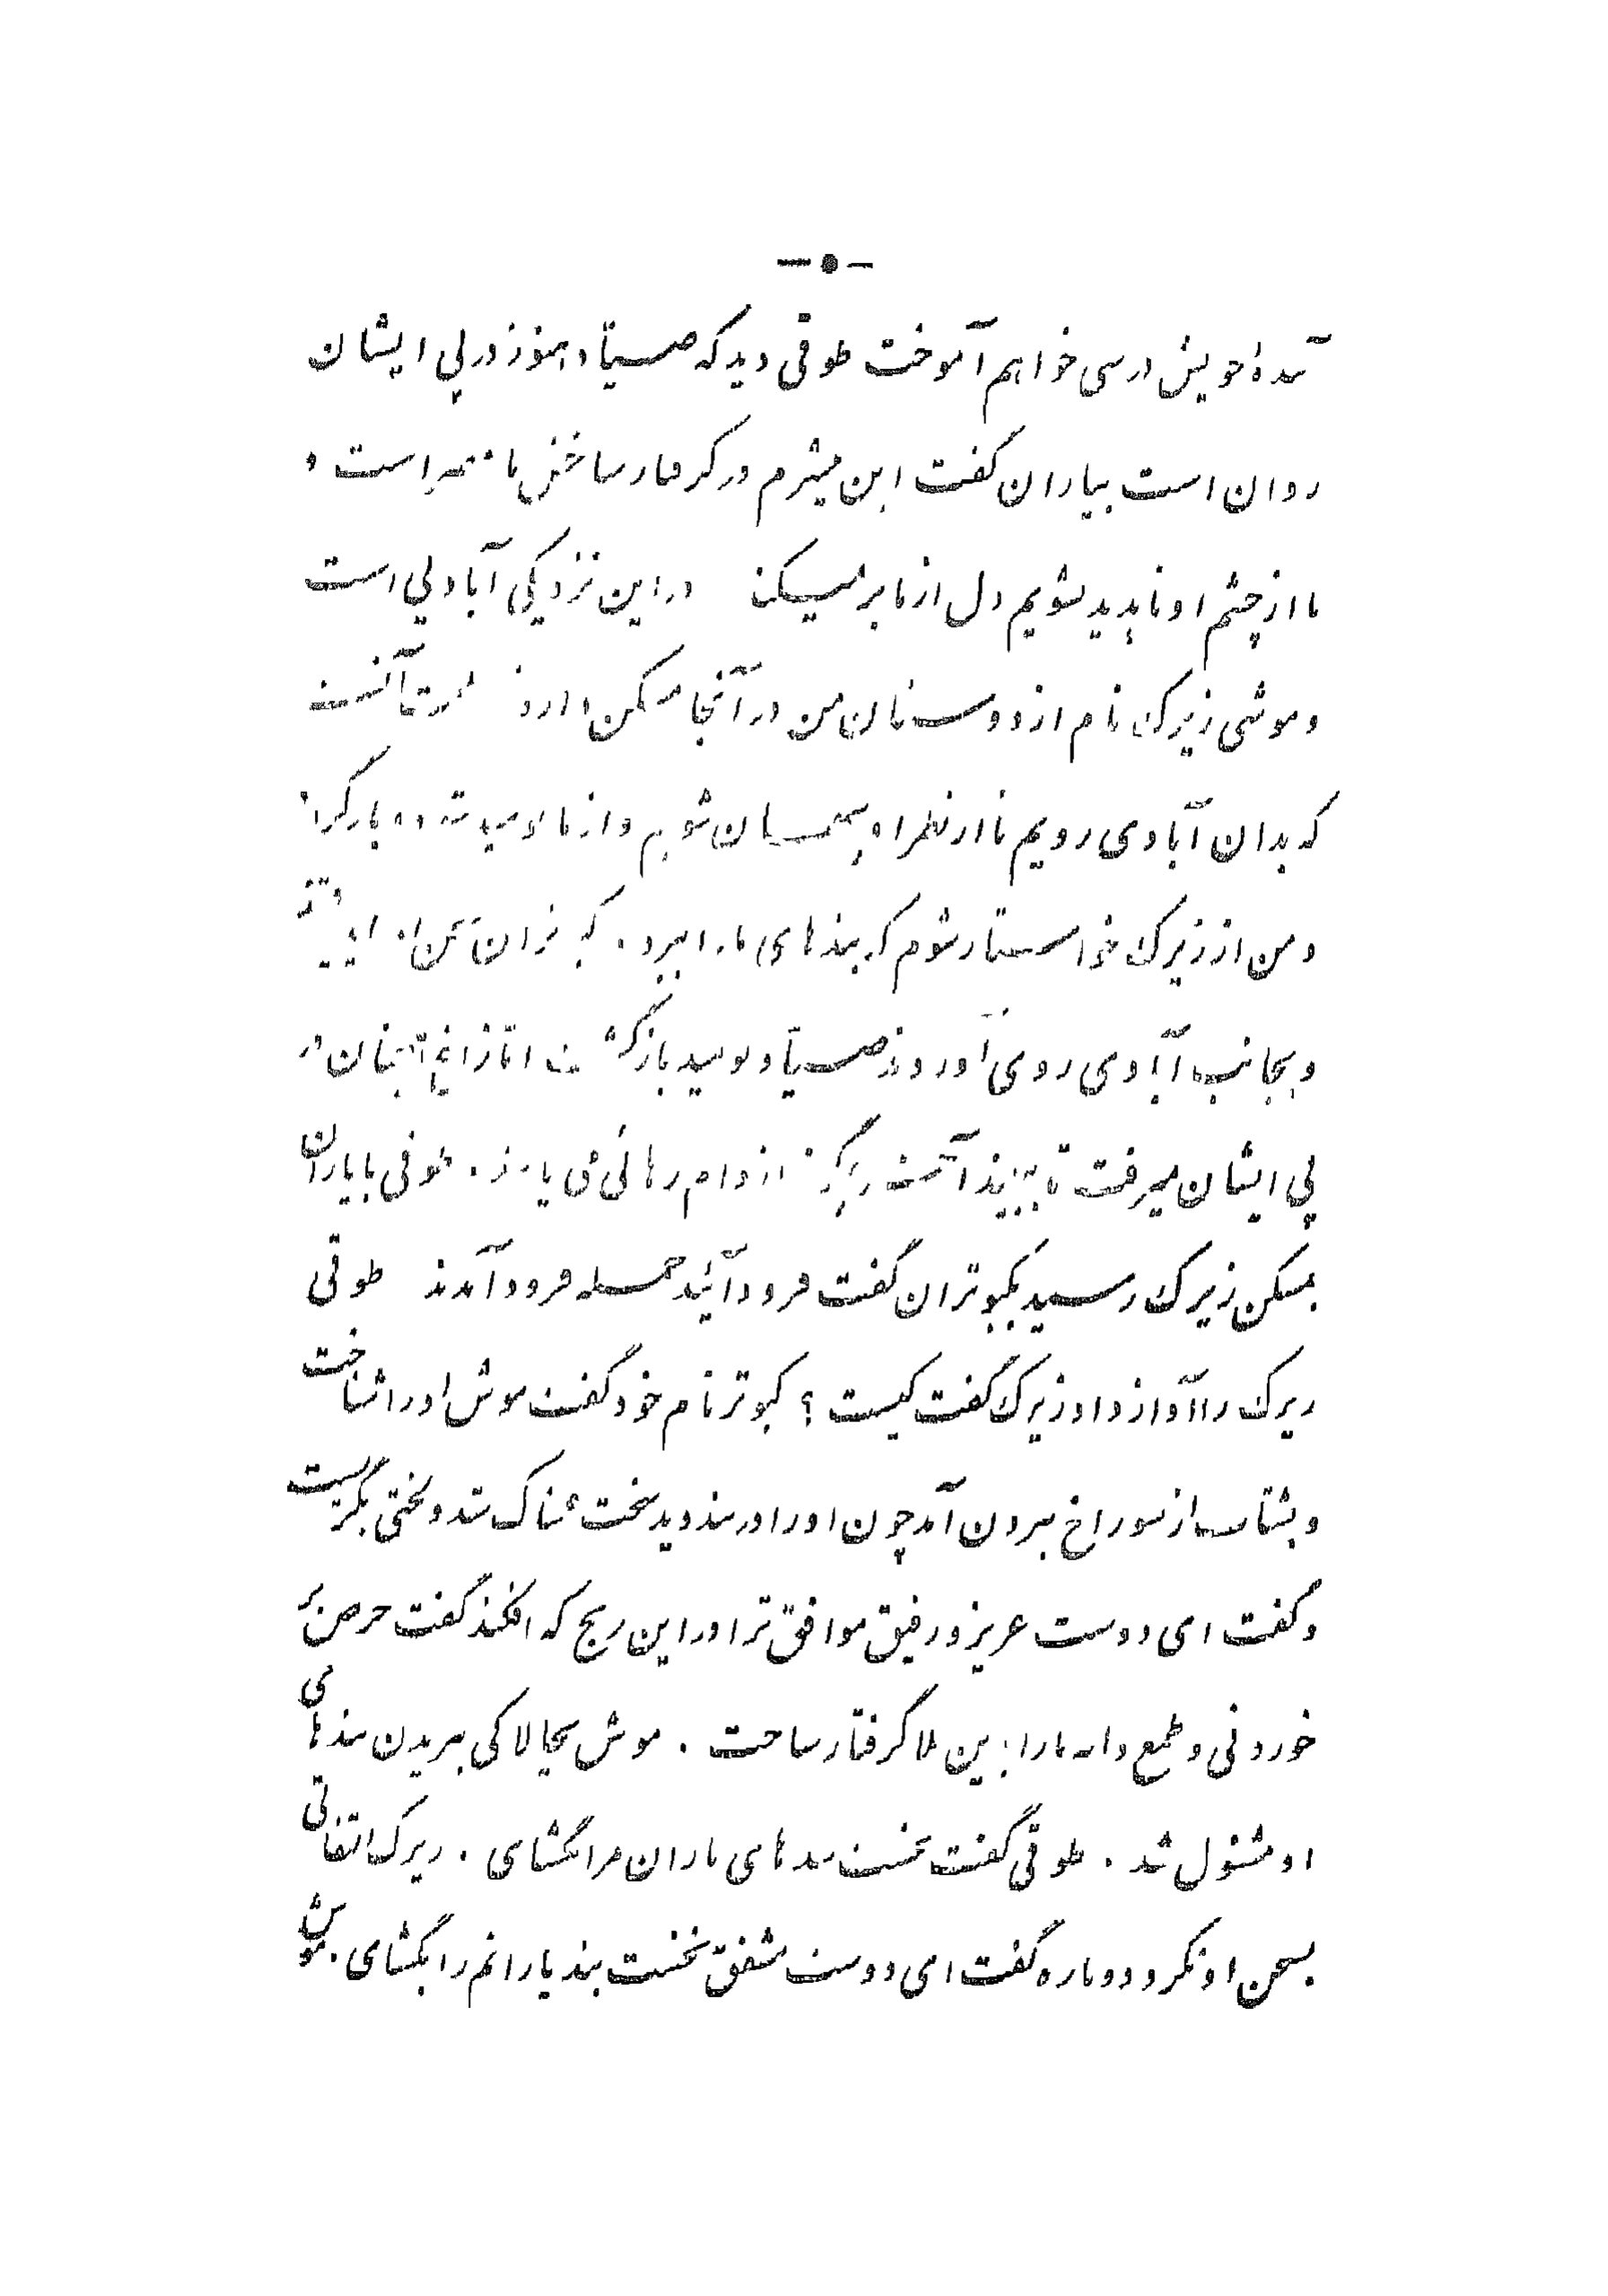 -۵-
آیندهٔ خویش درسی خواهم آموخت طوقی دید که صیّاد هنوز در پی ایشان
روان است بیاران گفت این بیشرم در گرفتار ساختن ما است و
ما از چشم او ناپدید نشویم دل از ما بر نمیکند در این نزدیکی آبادیی است
و موشی زیرک نام از دوستان من در آنجا مسکن دارد آنست
که بدان آبادی رویم تا از نظر او پنهان شویم و از ما نومید شده بازگردد
و من از زیرک خواستار شوم که بندهای ما را ببرد. کبوتران
و بجانب آبادی روی آوردند صیّاد نومید بازگشت امّا زاغ همچنان در
پی ایشان میرفت تا ببیند از دام رهائی می یابند. طوقی با یاران
بمسکن زیرک رسید بکبوتران گفت فرود آئید جمله فرود آمدند طوقی
زیرک را آواز داد زیرک گفت کیست ؟ کبوتر نام خود گفت موش او را شناخت
و بشتاب از سوراخ بیرون آمد چون او را در بند دید سخت غمناک شد و لختی بگریست
و گفت ای دوست عزیز و رفیق موافق ترا در این رنج که افکند گفت حرص بر
خوردنی و طمع دانه ما را باین بلا گرفتار ساخت . موش بچالاکی ببریدن بندهای
او مشغول شد . طوقی گفت نخست بندهای یاران مرا بگشای . زیرک التفاتی
بسخن او نکرد دوباره گفت ای دوست مشفق نخست بند یارانم را بگشای . موش